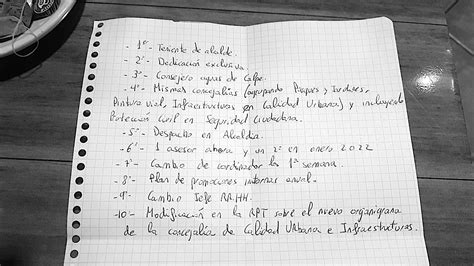 - 1º- Teniente de alcalde.
- 2º- Dedicación exclusiva.
- 3º- Consejero aguas de Calpe.
- 4º- Mismas concejalías (agrupando Parques y Jardines,
Pintura vial, Infraestructuras en Calidad Urbana) y incluyendo
Protección Civil en Seguridad Ciudadana.
- 5º- Despacho en Alcaldía.
- 6º- 1 asesor ahora y un 2º en enero 2022
- 7º- Cambio de coordinador la 1ª semana.
- 8º- Plan de promociones internas anual.
- 9º- Cambio Jefe RR.HH.
- 10- Modificación en la RPT sobre el nuevo organigrama
de la concejalía de Calidad Urbana e Infraestructuras.